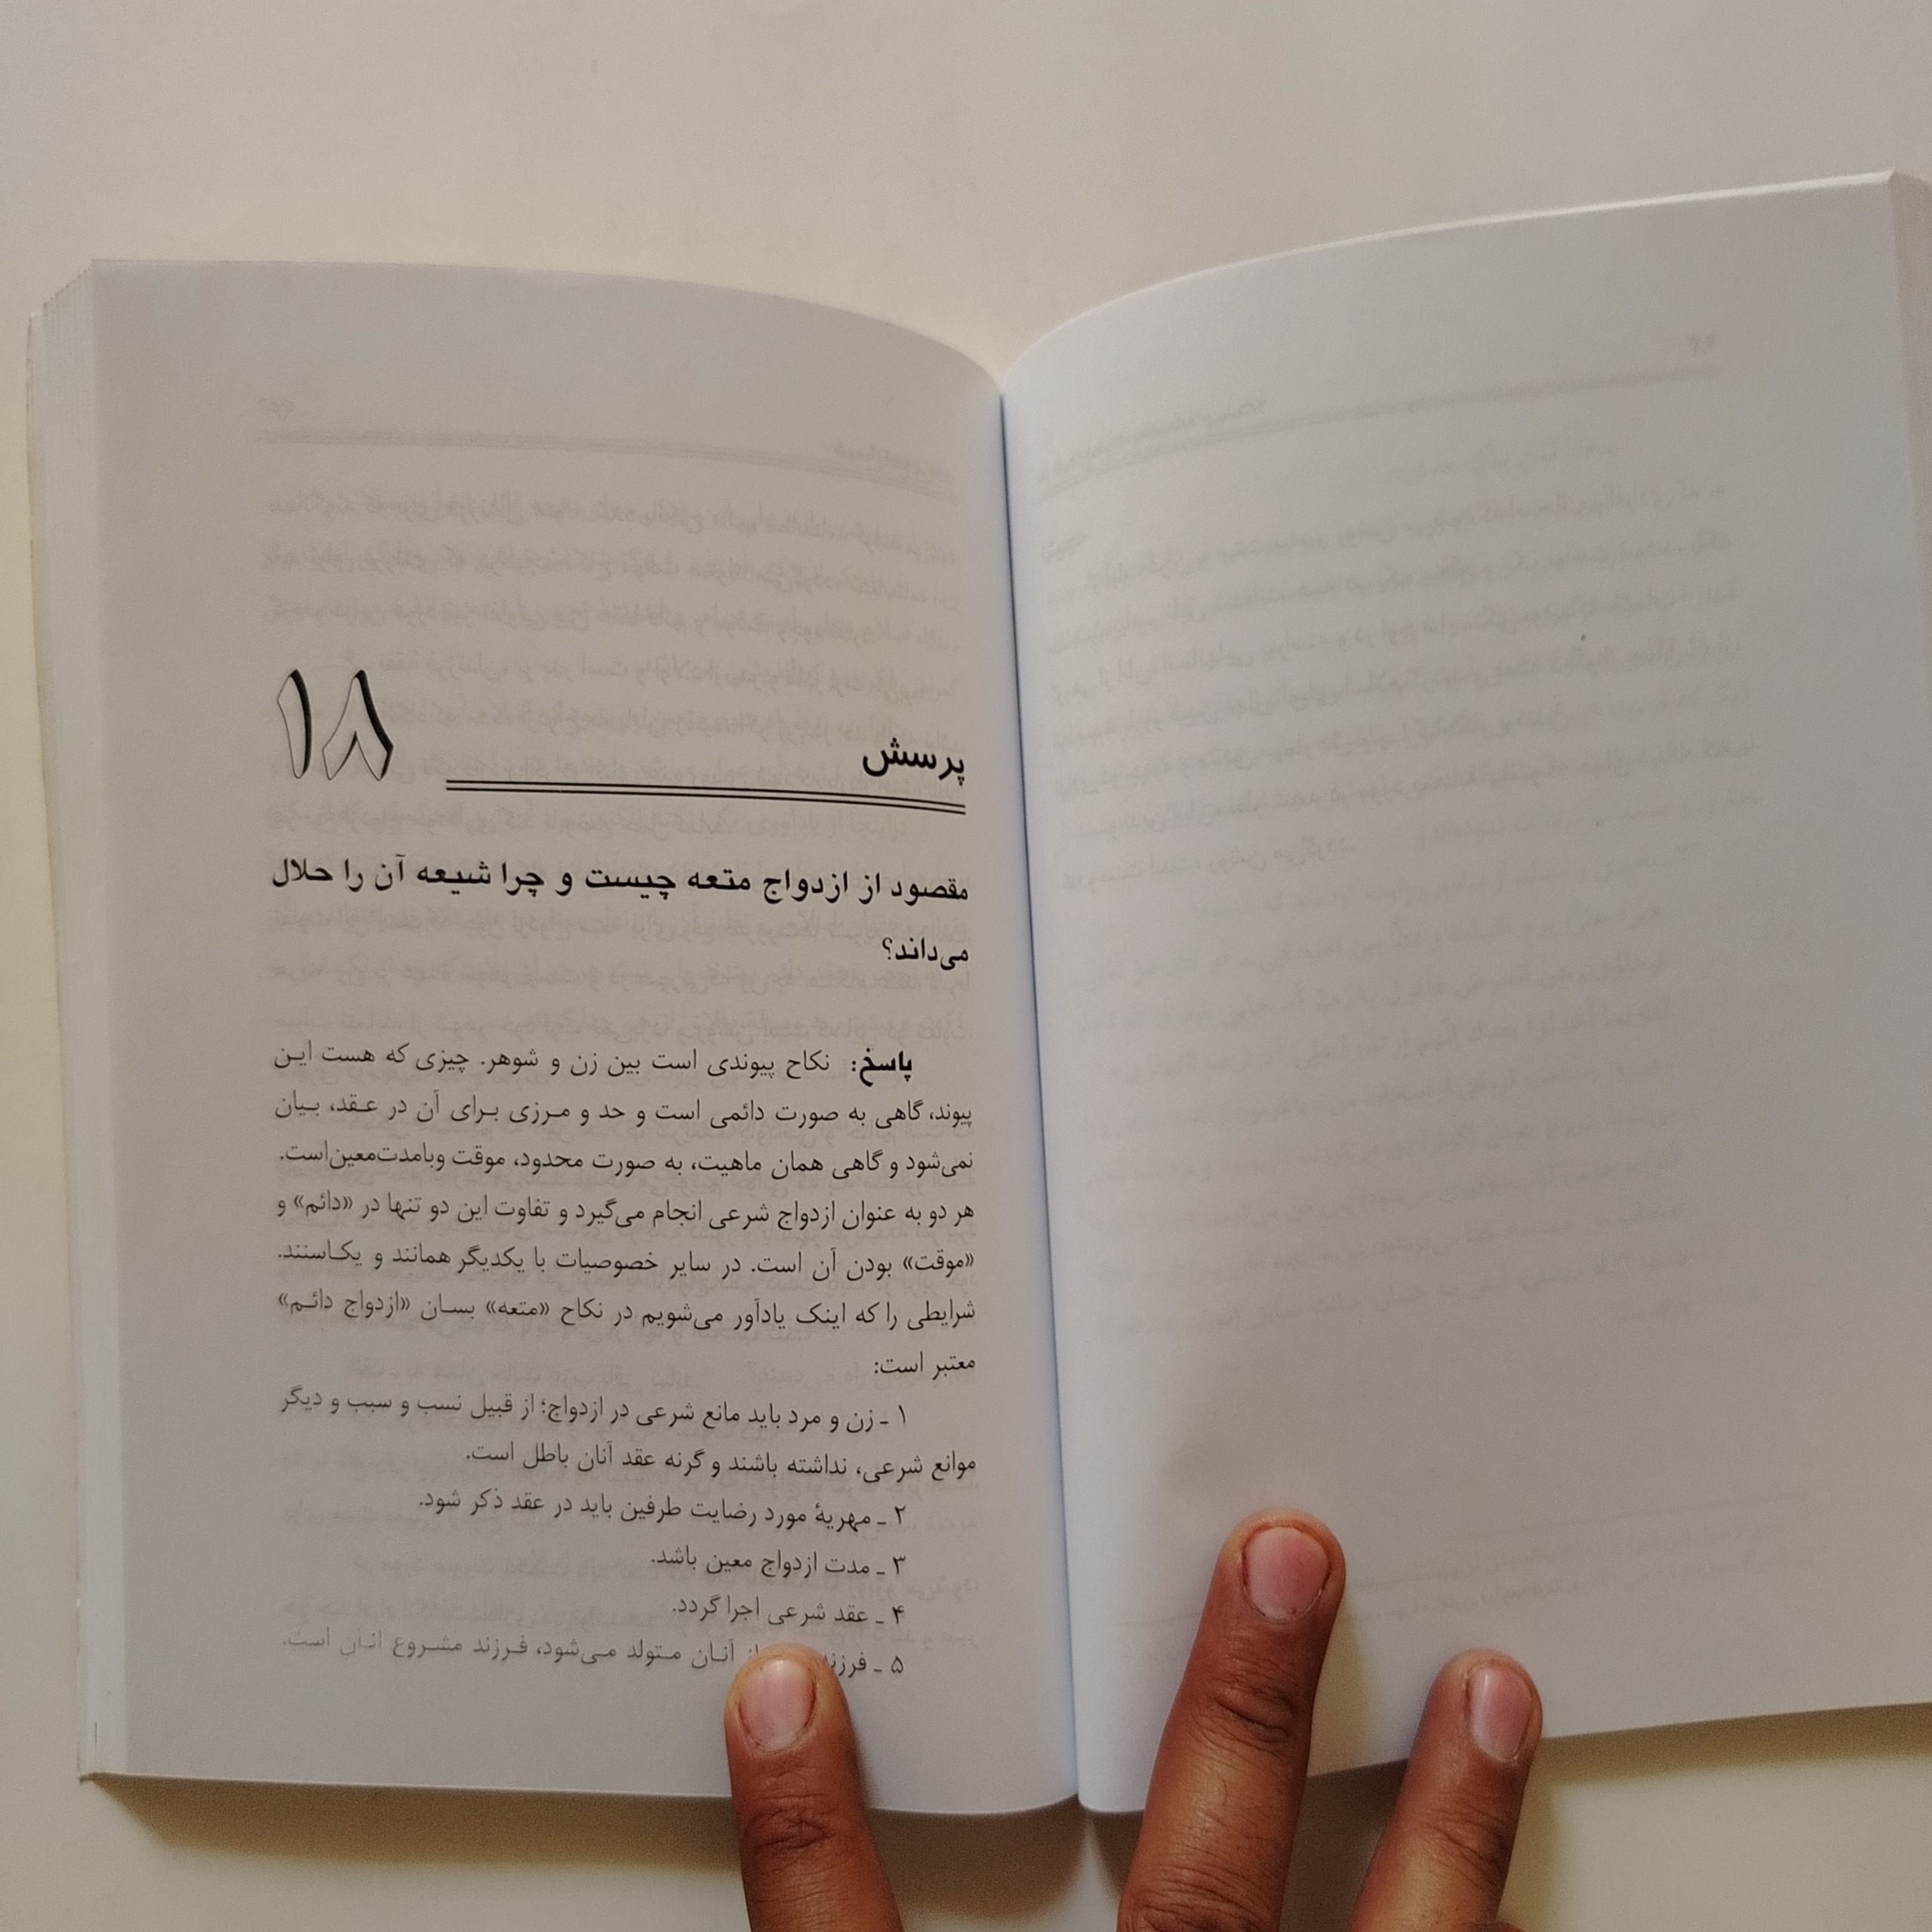 پرسش ۱۸
مقصود از ازدواج متعه چیست و چرا شیعه آن را حلال
می‌داند؟
پاسخ: نکاح پیوندی است بین زن و شوهر. چیزی که هست این
پیوند، گاهی به صورت دائمی است و حد و مرزی برای آن در عقد، بیان
نمی‌شود و گاهی همان ماهیت، به صورت محدود، موقت وبامدت‌معین‌است.
هر دو به عنوان ازدواج شرعی انجام می‌گیرد و تفاوت این دو تنها در «دائم» و
«موقت» بودن آن است. در سایر خصوصیات با یکدیگر همانند و یکسانند.
شرایطی را که اینک یادآور می‌شویم در نکاح «متعه» بسان «ازدواج دائم»
معتبر است:
۱ ـ زن و مرد باید مانع شرعی در ازدواج؛ از قبیل نسب و سبب و دیگر
موانع شرعی، نداشته باشند و گرنه عقد آنان باطل است.
۲ ـ مهریهٔ مورد رضایت طرفین باید در عقد ذکر شود.
۳ ـ مدت ازدواج معین باشد.
۴ ـ عقد شرعی اجرا گردد.
۵ ـ آنان متولد می‌شود، فرزند مشروع آنان است.